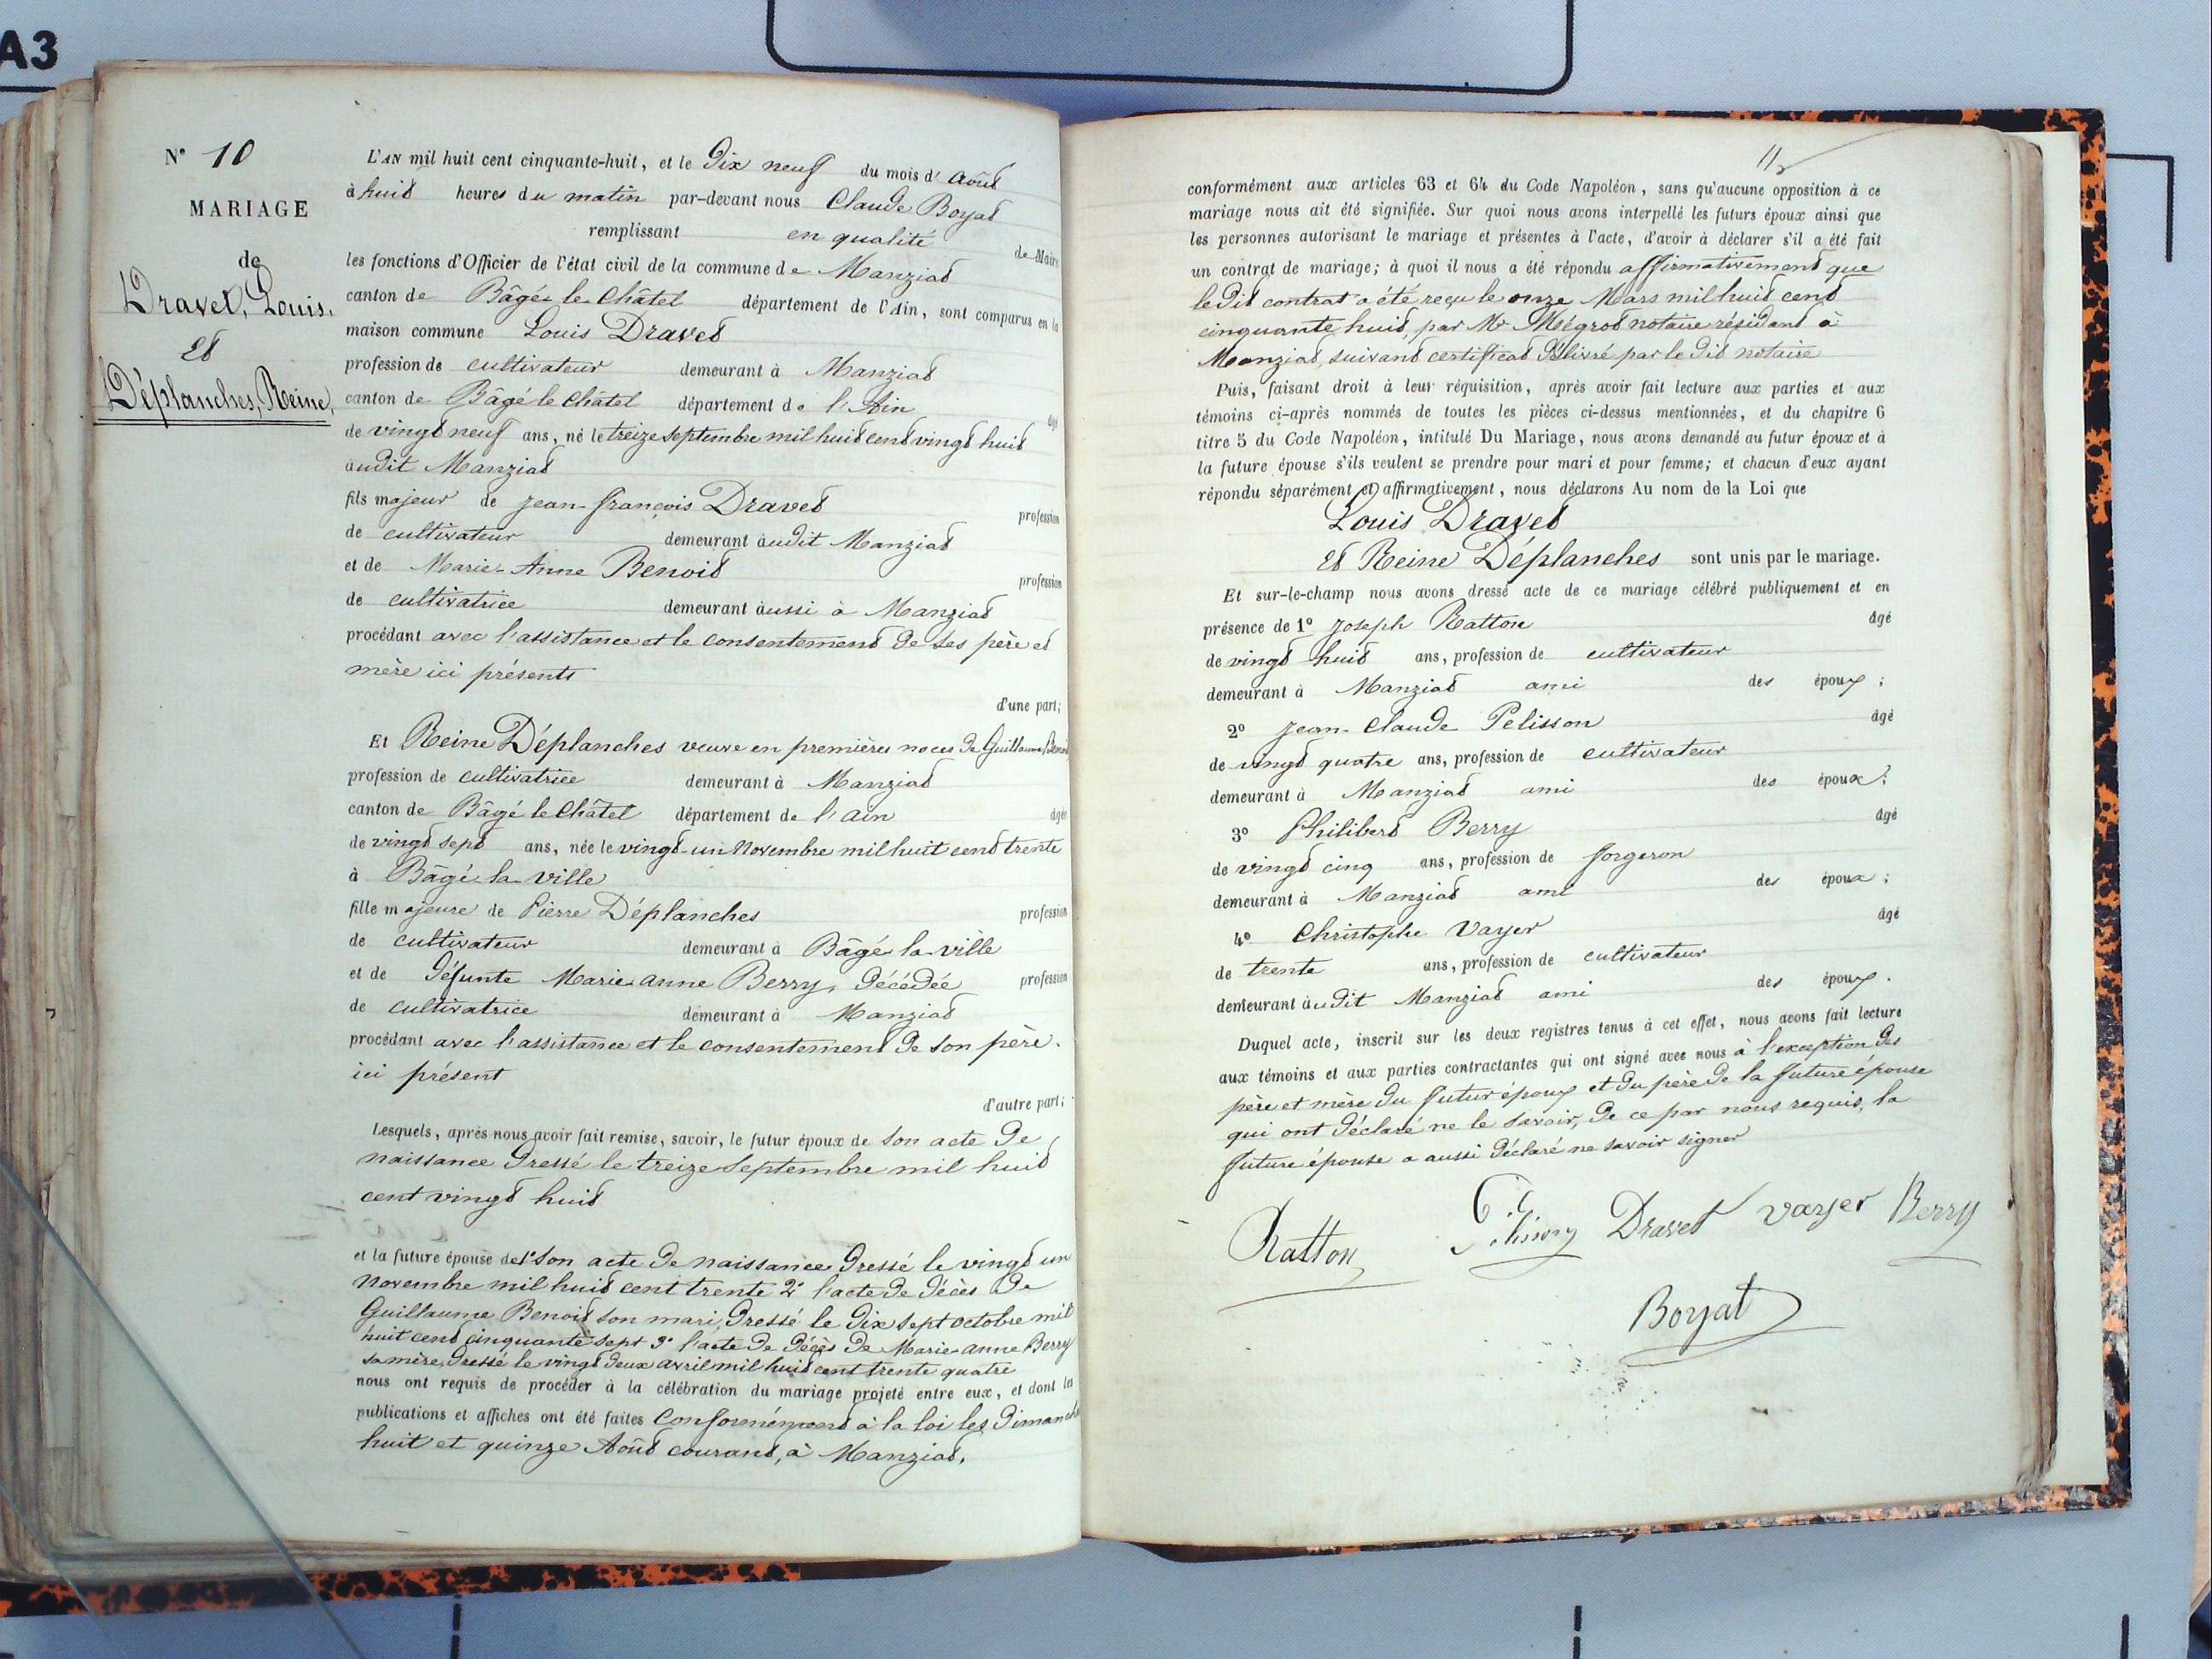 A3
N° 10
MARIAGE
de
Dravet, Louis,
Et
Déplanches, Reine,
L'AN mil huit cent cinquante-huit, et le Dix neuf du mois d' Août
à huit heures du matin par-devant nous Claude Boyat
remplissant en qualité de Maire
les fonctions d'Officier de l'état civil de la commune de Manziat
canton de Bâgé-le-Châtel département de l'Ain, sont comparus en la
maison commune Louis Dravet
profession de cultivateur demeurant à Manziat
canton de Bâgé le Châtel département de l'Ain âgé
de vingt neuf ans, né le treize septembre mil huit cent vingt huit
audit Manziat
fils majeur de jean-françois Dravet profession
de cultivateur demeurant audit Manziat
et de Marie-Anne Benoit profession
de cultivatrice demeurant aussi à Manziat
procédant avec l'assistance et le consentement de ses père et
mère ici présents
d'une part;
Et Reine Déplanches veuve en premières noces de Guillaume Benoit
profession de cultivatrice demeurant à Manziat
canton de Bâgé le Châtel département de l'ain âgée
de vingt sept ans, née le vingt-un Novembre mil huit cent trente
à Bâgé-la-ville
fille majeure de Pierre Déplanches profession
de cultivateur demeurant à Bâgé la-ville
et de défunte Marie anne Berry, décédée profession
de cultivatrice demeurant à Manziat
procédant avec l'assistance et le consentement de son père.
ici présent
d'autre part;
Lesquels, après nous avoir fait remise, savoir, le futur époux de son acte de
naissance dressé le treize Septembre mil huit
cent vingt huit
et la future épouse de 1° son acte de naissance dressé le vingt un
novembre mil huit cent trente 2° l'acte de décès de
Guillaume Benoit son mari, dressé le dix sept octobre mil
huit cent cinquante sept 3° l'acte de décès de Marie-anne Berry
sa mère, dressé le vingt deux avril mil huit cent trente quatre
nous ont requis de procéder à la célébration du mariage projeté entre eux, et dont les
publications et affiches ont été faites conformément à la loi les dimanches
huit et quinze Août courant, à Manziat,
11
conformément aux articles 63 et 64 du Code Napoléon, sans qu'aucune opposition à ce
mariage nous ait été signifiée. Sur quoi nous avons interpellé les futurs époux ainsi que
les personnes autorisant le mariage et présentes à l'acte, d'avoir à déclarer s'il a été fait
un contrat de mariage; à quoi il nous a été répondu affirmativement que
le dit contrat a été reçu le onze Mars mil huit cent
cinquante huit, par Mr Mégrot notaire résidant à
Manziat, suivant certificat délivré par le dit notaire
Puis, faisant droit à leur réquisition, après avoir fait lecture aux parties et aux
témoins ci-après nommés de toutes les pièces ci-dessus mentionnées, et du chapitre 6
titre 5 du Code Napoléon, intitulé Du Mariage, nous avons demandé au futur époux et à
la future épouse s'ils veulent se prendre pour mari et pour femme; et chacun d'eux ayant
répondu séparément et affirmativement, nous déclarons Au nom de la Loi que
Louis Dravet
Et Reine Déplanches sont unis par le mariage.
Et sur-le-champ nous avons dressé acte de ce mariage célébré publiquement et en
présence de 1° joseph Ratton âgé
de vingt huit ans, profession de cultivateur
demeurant à Manziat ami des époux;
2° jean-Claude Pelisson âgé
de vingt quatre ans, profession de cultivateur
demeurant à Manziat ami des époux;
3° Philibert Berry âgé
de vingt cinq ans, profession de forgeron
demeurant à Manziat ami des époux;
4° Christophe Vayer âgé
de trente ans, profession de cultivateur
demeurant audit Manziat ami des époux.
Duquel acte, inscrit sur les deux registres tenus à cet effet, nous avons fait lecture
aux témoins et aux parties contractantes qui ont signé avec nous à l'exception des
père et mère du futur époux et du père de la future épouse
qui ont déclaré ne le savoir, de ce par nous requis, la
future épouse a aussi déclaré ne savoir signer
Ratton Dravet vayer Berry
Boyat